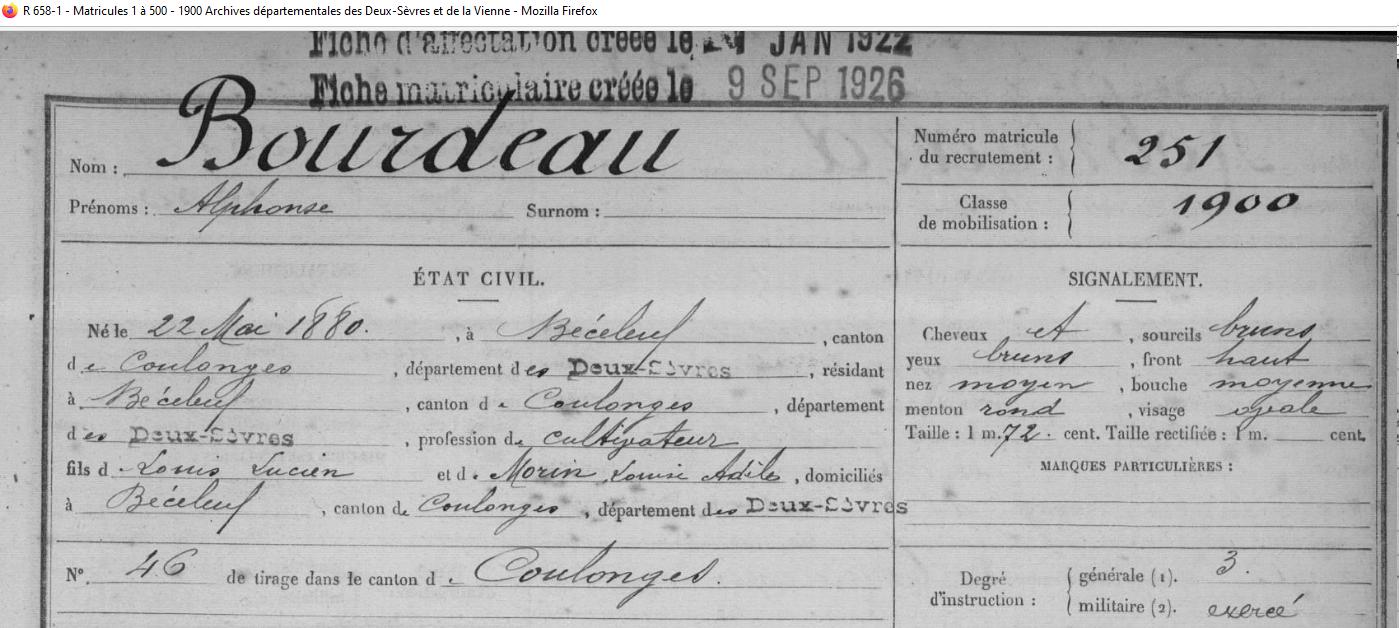 R 658-1 - Matricules 1 à 500 - 1900 Archives départementales des Deux-Sèvres et de la Vienne - Mozilla Firefox
Fiche d'affectation créée le JAN 1922
Fiche matriculaire créée le 9 SEP 1926
Nom : Bourdeau
Prénoms : Alphonse Surnom :
Numéro matricule du recrutement : 251
Classe de mobilisation : 1900
ÉTAT CIVIL.
Né le 22 Mai 1880. , à Béceleuf , canton
de Coulonges , département des Deux-Sèvres , résidant
à Béceleuf , canton de Coulonges , département
des Deux-Sèvres , profession de cultivateur
fils de Louis Lucien et de Morin Louise Adèle , domiciliés
à Béceleuf , canton de Coulonges , département des Deux-Sèvres
N° 46 de tirage dans le canton de Coulonges.
SIGNALEMENT.
Cheveux et , sourcils bruns
yeux bruns , front haut
nez moyen , bouche moyenne
menton rond , visage ovale
Taille : 1 m. 72 cent. Taille rectifiée : 1 m. cent.
MARQUES PARTICULIÈRES :
Degré d'instruction : générale (1). 3.
militaire (2). exercé